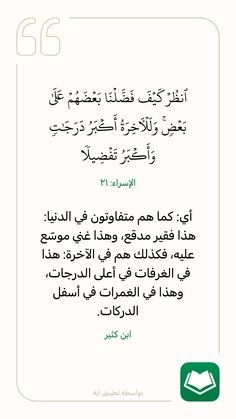 ٱنظُرۡ كَيۡفَ فَضَّلۡنَا بَعۡضَهُمۡ عَلَىٰ
بَعۡضٖۚ وَلَلۡأٓخِرَةُ أَكۡبَرُ دَرَجَٰتٖ
وَأَكۡبَرُ تَفۡضِيلٗا
الإسراء: ٢١
أي: كما هم متفاوتون في الدنيا:
هذا فقير مدقع، وهذا غني موسّع
عليه، فكذلك هم في الآخرة: هذا
في الغرفات في أعلى الدرجات،
وهذا في الغمرات في أسفل
الدركات.
ابن كثير
بواسطة تطبيق آية